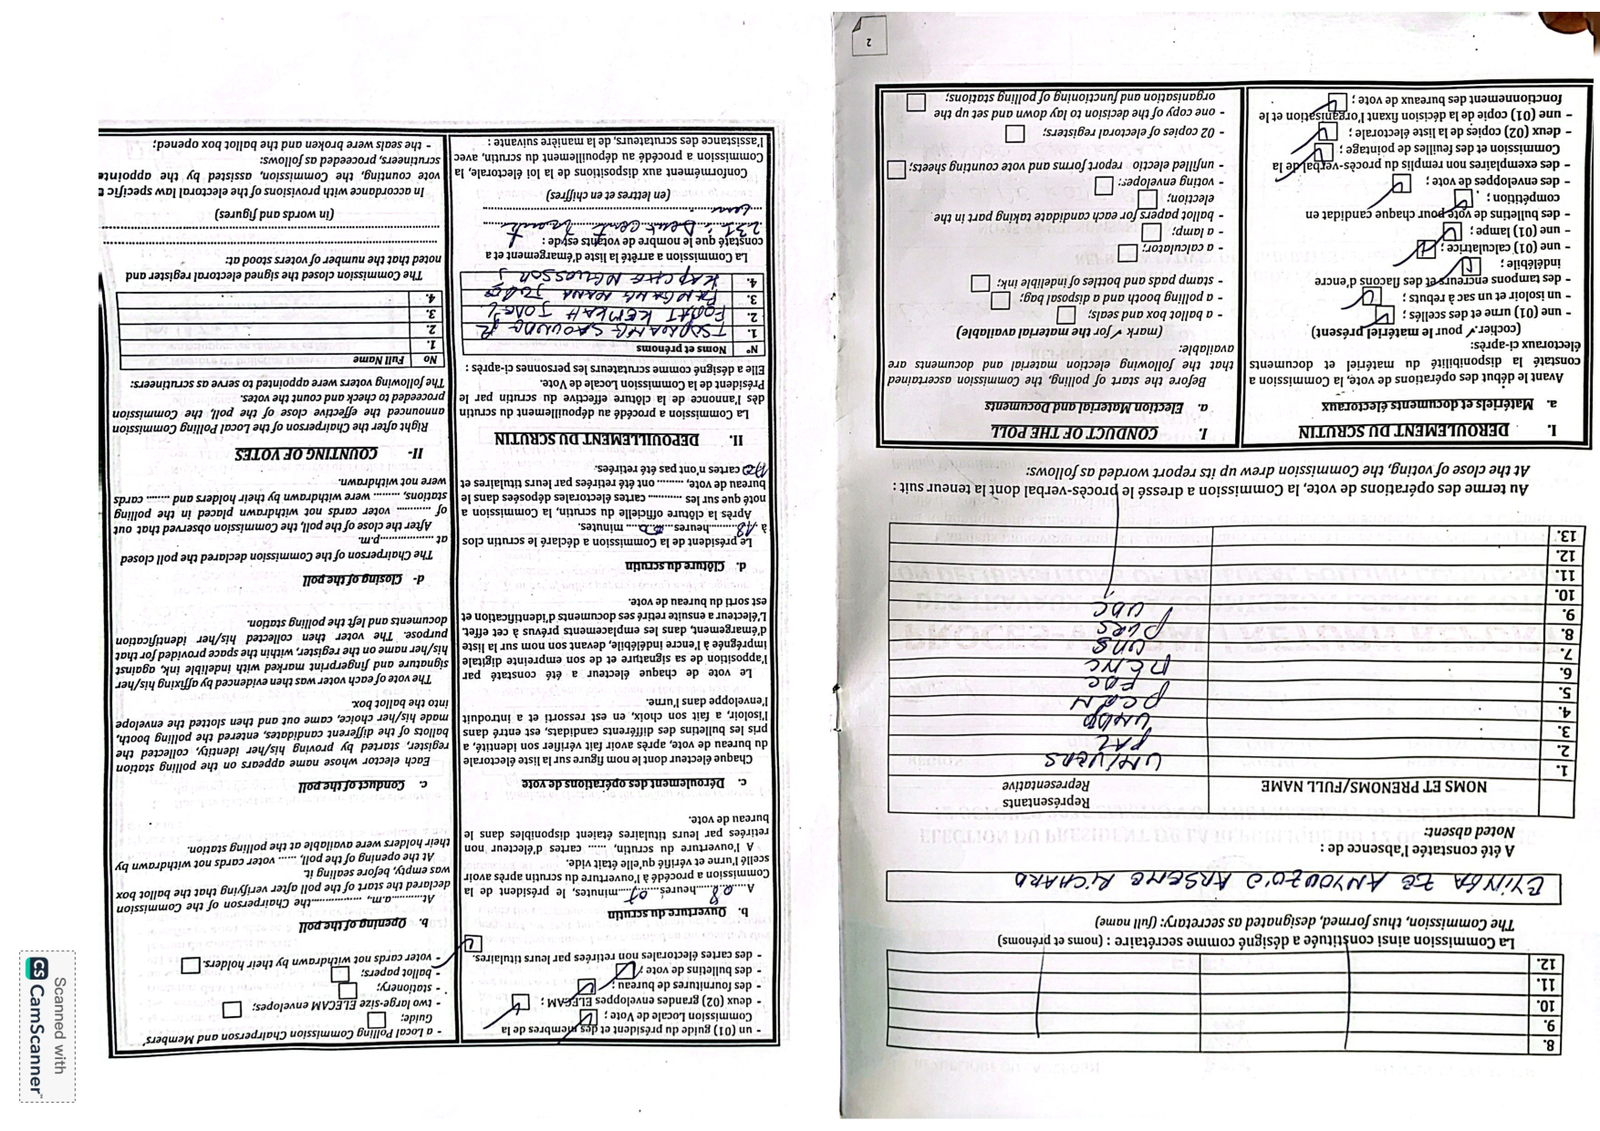 8.
9.
10.
11.
12.
La Commission ainsi constituée a désigné comme secrétaire : (noms et prénoms)
The Commission, thus formed, designated as secretary: (full name)
EYINGA ZE ANYOUZO'O ARSENE RICHARD
A été constatée l'absence de :
Noted absent:
NOMS ET PRENOMS/FULL NAME
Représentants
Representative
1. UNIVERS
2. PAL
3. UNDP
4. PCRN
5. FDC
6.
7. UMS
8. PURS
9. UDC
10.
11.
12.
13.
Au terme des opérations de vote, la Commission a dressé le procès-verbal dont la teneur suit :
At the close of voting, the Commission drew up its report worded as follows:
I. DEROULEMENT DU SCRUTIN
a. Matériels et documents électoraux
Avant le début des opérations de vote, la Commission a
constaté la disponibilité du matériel et documents
électoraux ci-après:
(cocher ✓ pour le matériel présent)
- une (01) urne et des scellés ;
- un isoloir et un sac à rebuts ;
- des tampons encreurs et des flacons d'encre
indélébile ;
- une (01) calculatrice ;
- une (01) lampe ;
- des bulletins de vote pour chaque candidat en
compétition ;
- des enveloppes de vote ;
- des exemplaires non remplis du procès-verbal de la
Commission et des feuilles de pointage ;
- deux (02) copies de la liste électorale ;
- une (01) copie de la décision fixant l'organisation et le
fonctionnement des bureaux de vote ;
I. CONDUCT OF THE POLL
a. Election Material and Documents
Before the start of polling, the Commission ascertained
that the following election material and documents are
available:
(mark ✓ for the material available)
- a ballot box and seals;
- a polling booth and a disposal bag;
- stamp pads and bottles of indelible ink;
- a calculator;
- a lamp;
- ballot papers for each candidate taking part in the
election;
- voting envelopes;
- unfilled election report forms and vote counting sheets;
- 02 copies of electoral registers;
- one copy of the decision to lay down and set up the
organisation and functioning of polling stations;
2
- un (01) guide du président et des membres de la
Commission Locale de Vote ;
- deux (02) grandes enveloppes ELECAM ;
- des fournitures de bureau ;
- des bulletins de vote ;
- des cartes électorales non retirées par leurs titulaires.
b. Ouverture du scrutin
A 08 heures 07 minutes, le président de la
Commission a procédé à l'ouverture du scrutin après avoir
scellé l'urne et vérifié qu'elle était vide.
A l'ouverture du scrutin, ...... cartes d'électeur non
retirées par leurs titulaires étaient disponibles dans le
bureau de vote.
c. Déroulement des opérations de vote
Chaque électeur dont le nom figure sur la liste électorale
du bureau de vote, après avoir fait vérifier son identité, a
pris les bulletins des différents candidats, est entré dans
l'isoloir, a fait son choix, en est ressorti et a introduit
l'enveloppe dans l'urne.
Le vote de chaque électeur a été constaté par
l'apposition de sa signature et de son empreinte digitale
imprégnée à l'encre indélébile, devant son nom sur la liste
d'émargement, dans les emplacements prévus à cet effet.
L'électeur a ensuite retiré ses documents d'identification et
est sorti du bureau de vote.
d. Clôture du scrutin
Le président de la Commission a déclaré le scrutin clos
à 18 heures 00 minutes.
Après la clôture officielle du scrutin, la Commission a
noté que sur les .......... cartes électorales déposées dans le
bureau de vote, ........ ont été retirées par leurs titulaires et
cartes n'ont pas été retirées.
II. DEPOUILLEMENT DU SCRUTIN
La Commission a procédé au dépouillement du scrutin
dès l'annonce de la clôture effective du scrutin par le
Président de la Commission Locale de Vote.
Elle a désigné comme scrutateurs les personnes ci-après :
N° Noms et prénoms
1.
2.
3.
4.
La Commission a arrêté la liste d'émargement et a
constaté que le nombre de votants est de :
231 : Deux cent trente
(en lettres et en chiffres)
Conformément aux dispositions de la loi électorale, la
Commission a procédé au dépouillement du scrutin, avec
l'assistance des scrutateurs, de la manière suivante :
- a Local Polling Commission Chairperson and Members'
Guide;
- two large-size ELECAM envelopes;
- stationery;
- ballot papers;
- voter cards not withdrawn by their holders.
b. Opening of the poll
At..........a.m, ...............the Chairperson of the Commission
declared the start of the poll after verifying that the ballot box
was empty, before sealing it.
At the opening of the poll, ...... voter cards not withdrawn by
their holders were available at the polling station.
c. Conduct of the poll
Each elector whose name appears on the polling station
register, started by proving his/her identity, collected the
ballots of the different candidates, entered the polling booth,
made his/her choice, came out and then slotted the envelope
into the ballot box.
The vote of each voter was then evidenced by affixing his/her
signature and fingerprint marked with indelible ink, against
his/her name on the register, within the space provided for that
purpose. The voter then collected his/her identification
documents and left the polling station.
d- Closing of the poll
The Chairperson of the Commission declared the poll closed
at ....................p.m.
After the close of the poll, the Commission observed that out
of .......... voter cards not withdrawn placed in the polling
stations, ........ were withdrawn by their holders and ........ cards
were not withdrawn.
II- COUNTING OF VOTES
Right after the Chairperson of the Local Polling Commission
announced the effective close of the poll, the Commission
proceeded to check and count the votes.
The following voters were appointed to serve as scrutineers:
No Full Name
1.
2.
3.
4.
The Commission closed the signed electoral register and
noted that the number of voters stood at:
(in words and figures)
In accordance with provisions of the electoral law specific
vote counting, the Commission, assisted by the appointe
scrutineers, proceeded as follows:
- the seals were broken and the ballot box opened;
Scanned with
CS CamScanner